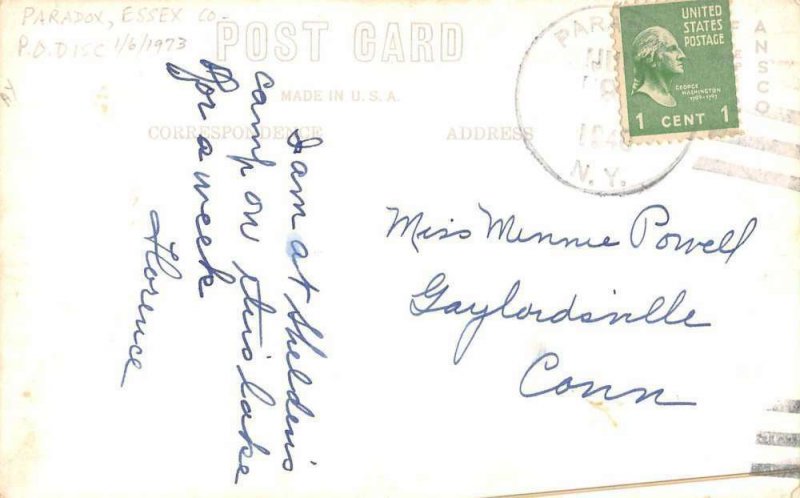 PARADOX, ESSEX CO.
P.O. DISC 1/6/1973
NY
POST CARD
MADE IN U.S.A.
CORRESPONDENCE
ADDRESS
ANSCO
PARADOX
N.Y.
UNITED
STATES
POSTAGE
GEORGE
WASHINGTON
1 CENT 1
I am at Sheldon's
camp on this lake
for a week
Florence
Miss Minnie Powell
Gaylordsville
Conn